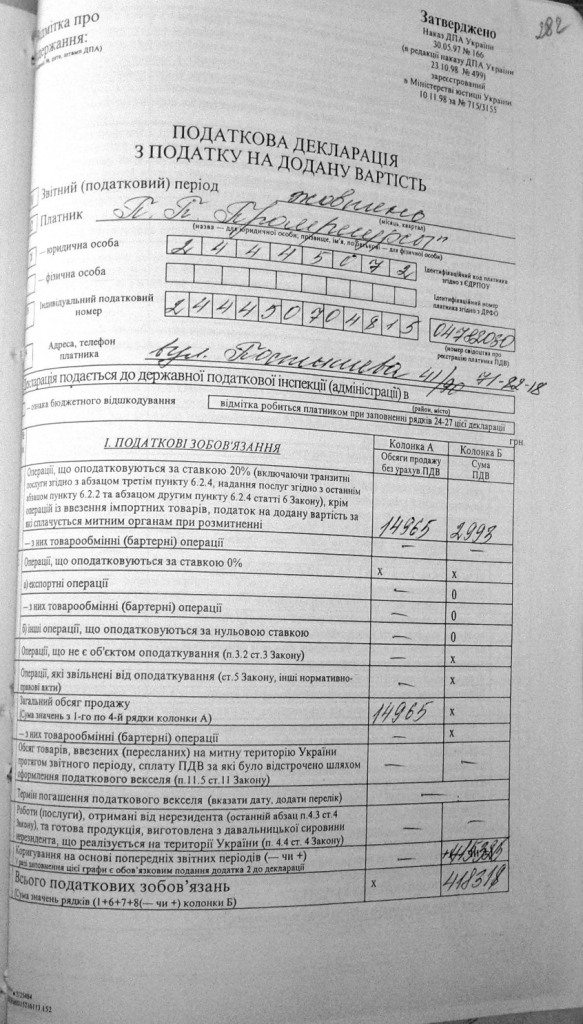 282
ідмітка про
держання:
Затверджено
Наказ ДПА України
30.05.97 № 166
(в редакції наказу ДПА України
23.10.98 № 499)
зареєстрований
в Міністерстві юстиції України
10.11.98 за № 715/3155
ПОДАТКОВА ДЕКЛАРАЦІЯ
З ПОДАТКУ НА ДОДАНУ ВАРТІСТЬ
Звітний (податковий) період жовтень
(місяць, квартал)
Платник П. П.
(назва — для юридичної особи; прізвище, ім'я, по батькові — для фізичної особи)
– юридична особа 2 4 4 4 5 0 7 2
Ідентифікаційний код платника згідно з ЄДРПОУ
– фізична особа
Ідентифікаційний номер платника згідно з ДРФО
Індивідуальний податковий номер 2 4 4 4 5 0 7 0 4 8 1 5 04782050
(номер свідоцтва про реєстрацію платника ПДВ)
Адреса, телефон платника вул. Постишева 71-82-18
Декларація подається до державної податкової інспекції (адміністрації) в
(район, місто)
– ознака бюджетного відшкодування відмітка робиться платником при заповненні рядків 24-27 цієї декларації
грн.
І. ПОДАТКОВІ ЗОБОВ'ЯЗАННЯ
Колонка А Колонка Б
Обсяги продажу без урахув ПДВ Сума ПДВ
Операції, що оподатковуються за ставкою 20% (включаючи транзитні
послуги згідно з абзацом третім пункту 6.2.4, надання послуг згідно з останнім
абзацом пункту 6.2.2 та абзацом другим пункту 6.2.4 статті 6 Закону), крім
операцій із ввезення імпортних товарів, податок на додану вартість за
які сплачується митним органам при розмитненні 14965 2993
– з них товарообмінні (бартерні) операції — —
Операції, що оподатковуються за ставкою 0% x x
а) експортні операції — 0
– з них товарообмінні (бартерні) операції — 0
б) інші операції, що оподатковуються за нульовою ставкою — 0
Операції, що не є об'єктом оподаткування (п.3.2 ст.3 Закону) — x
Операції, які звільнені від оподаткування (ст.5 Закону, інші нормативно-
правові акти) — x
Загальний обсяг продажу
(Сума значень з 1-го по 4-й рядки колонки А) 14965 x
– з них товарообмінні (бартерні) операції — x
Обсяг товарів, ввезених (пересланих) на митну територію України
протягом звітного періоду, сплату ПДВ за які було відстрочено шляхом
оформлення податкового векселя (п.11.5 ст.11 Закону) — —
Термін погашення податкового векселя (вказати дату, додати перелік) —
Роботи (послуги), отримані від нерезидента (останній абзац п.4.3 ст.4
Закону), та готова продукція, виготовлена з давальницької сировини
нерезидента, що реалізується на території України (п. 4.4 ст. 4 Закону) — —
Коригування на основі попередніх звітних періодів (— чи +) —
раз заповнення цієї графи є обов'язковим подання додатка 2 до декларації
Всього податкових зобов'язань
(Сума значень рядків (1+6+7+8(— чи +) колонки Б) x 418318